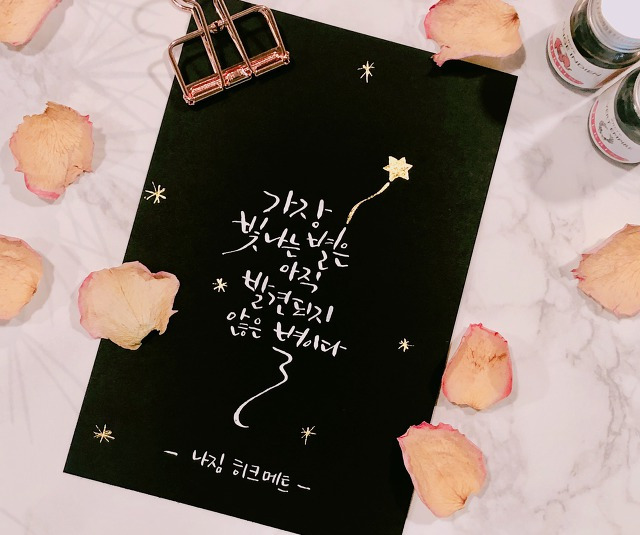 가장
빛나는 별은
아직
발견되지
않은 별이다
- 나짐 히크메트 -